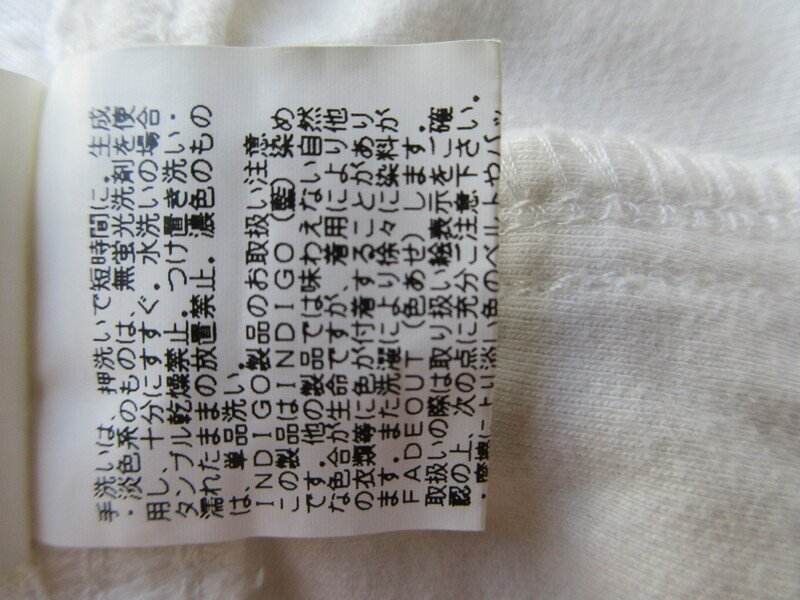 手洗いは、押洗いで短時間に。生成
・淡色系のものは、無蛍光洗剤を使
用し、十分にすすぐ。水洗いの場合
タンブル乾燥禁止。つけ置き洗い・
濡れたままの放置禁止。濃色のもの
は、単品洗い。
INDIGO製品のお取扱い注意
この製品はINDIGO(藍)染め
です。他の製品では味わえない自然
な色合が生命ですが、着用により他
の衣類等に色が付着することがあり
ます。また洗濯により徐々に染料が
FADEOUT(色あせ)します。
取扱いの際は取り扱い絵表示をご確
認の上、次の点に充分ご注意下さい。
・摩擦により淡い色のベルトやバッ